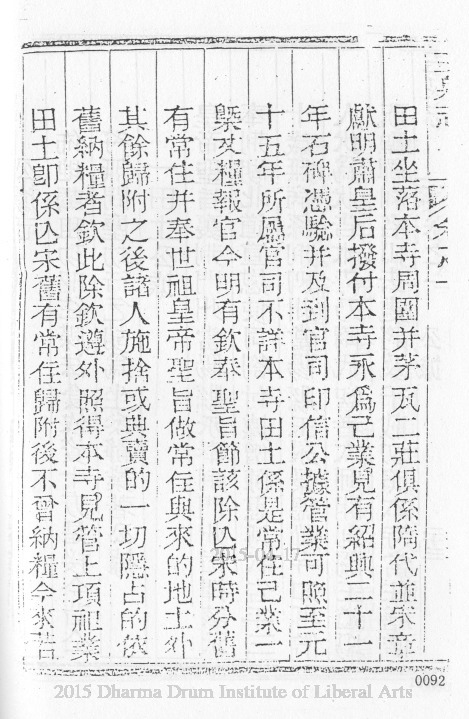 田土坐落本寺周圍并茅瓦二莊俱係隋代並宋章
獻明肅皇后撥付本寺永爲己業見有紹興二十一
年石碑憑驗并及到官司印信公據管業可照至元
十五年所屬官司不詳本寺田土係是常住己業一
槩及糧報官今明有欽奉聖旨節該除亾宋時分舊
有常住并奉世祖皇帝聖旨做常住與來的地土外
其餘歸附之後諸人施捨或典賣的一切隱占的依
舊納糧者欽此除欽遵外照得本寺見管上項祖業
田土卽係亾宋舊有常住歸附後不曾納糧今來若
0092
2015 Dharma Drum Institute of Liberal Arts